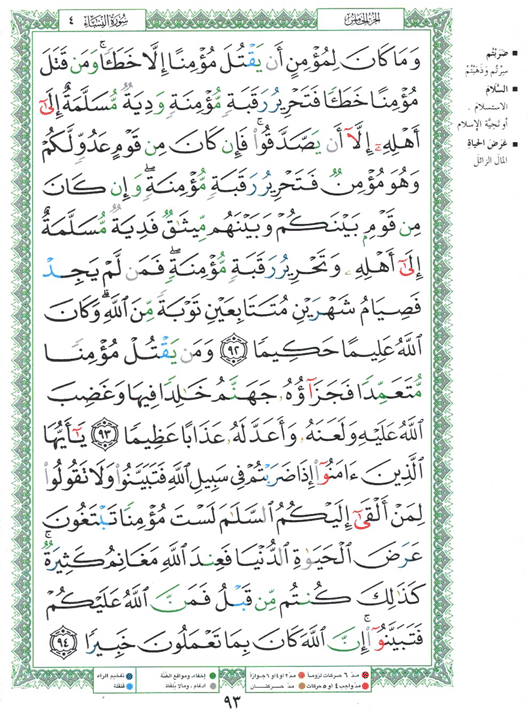 الجزء الخامس
سورة النساء ٤
وَمَا كَانَ لِمُؤْمِنٍ أَن يَقْتُلَ مُؤْمِنًا إِلَّا خَطَـًٔا ۚ وَمَن قَتَلَ
مُؤْمِنًا خَطَـًٔا فَتَحْرِيرُ رَقَبَةٍ مُّؤْمِنَةٍ وَدِيَةٌ مُّسَلَّمَةٌ إِلَىٰٓ
أَهْلِهِۦٓ إِلَّآ أَن يَصَّدَّقُوا۟ ۚ فَإِن كَانَ مِن قَوْمٍ عَدُوٍّ لَّكُمْ
وَهُوَ مُؤْمِنٌ فَتَحْرِيرُ رَقَبَةٍ مُّؤْمِنَةٍ ۖ وَإِن كَانَ
مِن قَوْمٍۭ بَيْنَكُمْ وَبَيْنَهُم مِّيثَـٰقٌ فَدِيَةٌ مُّسَلَّمَةٌ
إِلَىٰٓ أَهْلِهِۦ وَتَحْرِيرُ رَقَبَةٍ مُّؤْمِنَةٍ ۖ فَمَن لَّمْ يَجِدْ
فَصِيَامُ شَهْرَيْنِ مُتَتَابِعَيْنِ تَوْبَةً مِّنَ ٱللَّهِ ۗ وَكَانَ
ٱللَّهُ عَلِيمًا حَكِيمًا ٩٢ وَمَن يَقْتُلْ مُؤْمِنًا
مُّتَعَمِّدًا فَجَزَآؤُهُۥ جَهَنَّمُ خَـٰلِدًا فِيهَا وَغَضِبَ
ٱللَّهُ عَلَيْهِ وَلَعَنَهُۥ وَأَعَدَّ لَهُۥ عَذَابًا عَظِيمًا ٩٣ يَـٰٓأَيُّهَا
ٱلَّذِينَ ءَامَنُوٓا۟ إِذَا ضَرَبْتُمْ فِى سَبِيلِ ٱللَّهِ فَتَبَيَّنُوا۟ وَلَا تَقُولُوا۟
لِمَنْ أَلْقَىٰٓ إِلَيْكُمُ ٱلسَّلَـٰمَ لَسْتَ مُؤْمِنًا تَبْتَغُونَ
عَرَضَ ٱلْحَيَوٰةِ ٱلدُّنْيَا فَعِندَ ٱللَّهِ مَغَانِمُ كَثِيرَةٌ ۚ
كَذَٰلِكَ كُنتُم مِّن قَبْلُ فَمَنَّ ٱللَّهُ عَلَيْكُمْ
فَتَبَيَّنُوٓا۟ ۚ إِنَّ ٱللَّهَ كَانَ بِمَا تَعْمَلُونَ خَبِيرًا ٩٤
ضَرَبْتُم
سِرْتُم وَذَهَبْتُم
السَّلَامَ
الاستسلام
أو تحيّة الإسلام
عَرَضَ الحياةِ
المال الزائل
مدّ ٦ حركات لزوماً
مدّ ٢ أو ٤ أو ٦ جوازاً
إخفاء، ومواقع الغُنَّة
تفخيم الراء
مدّ واجب ٤ أو ٥ حركات
مدّ حركتان
ادغام، ومالا يُلفظ
قلقلة
٩٣